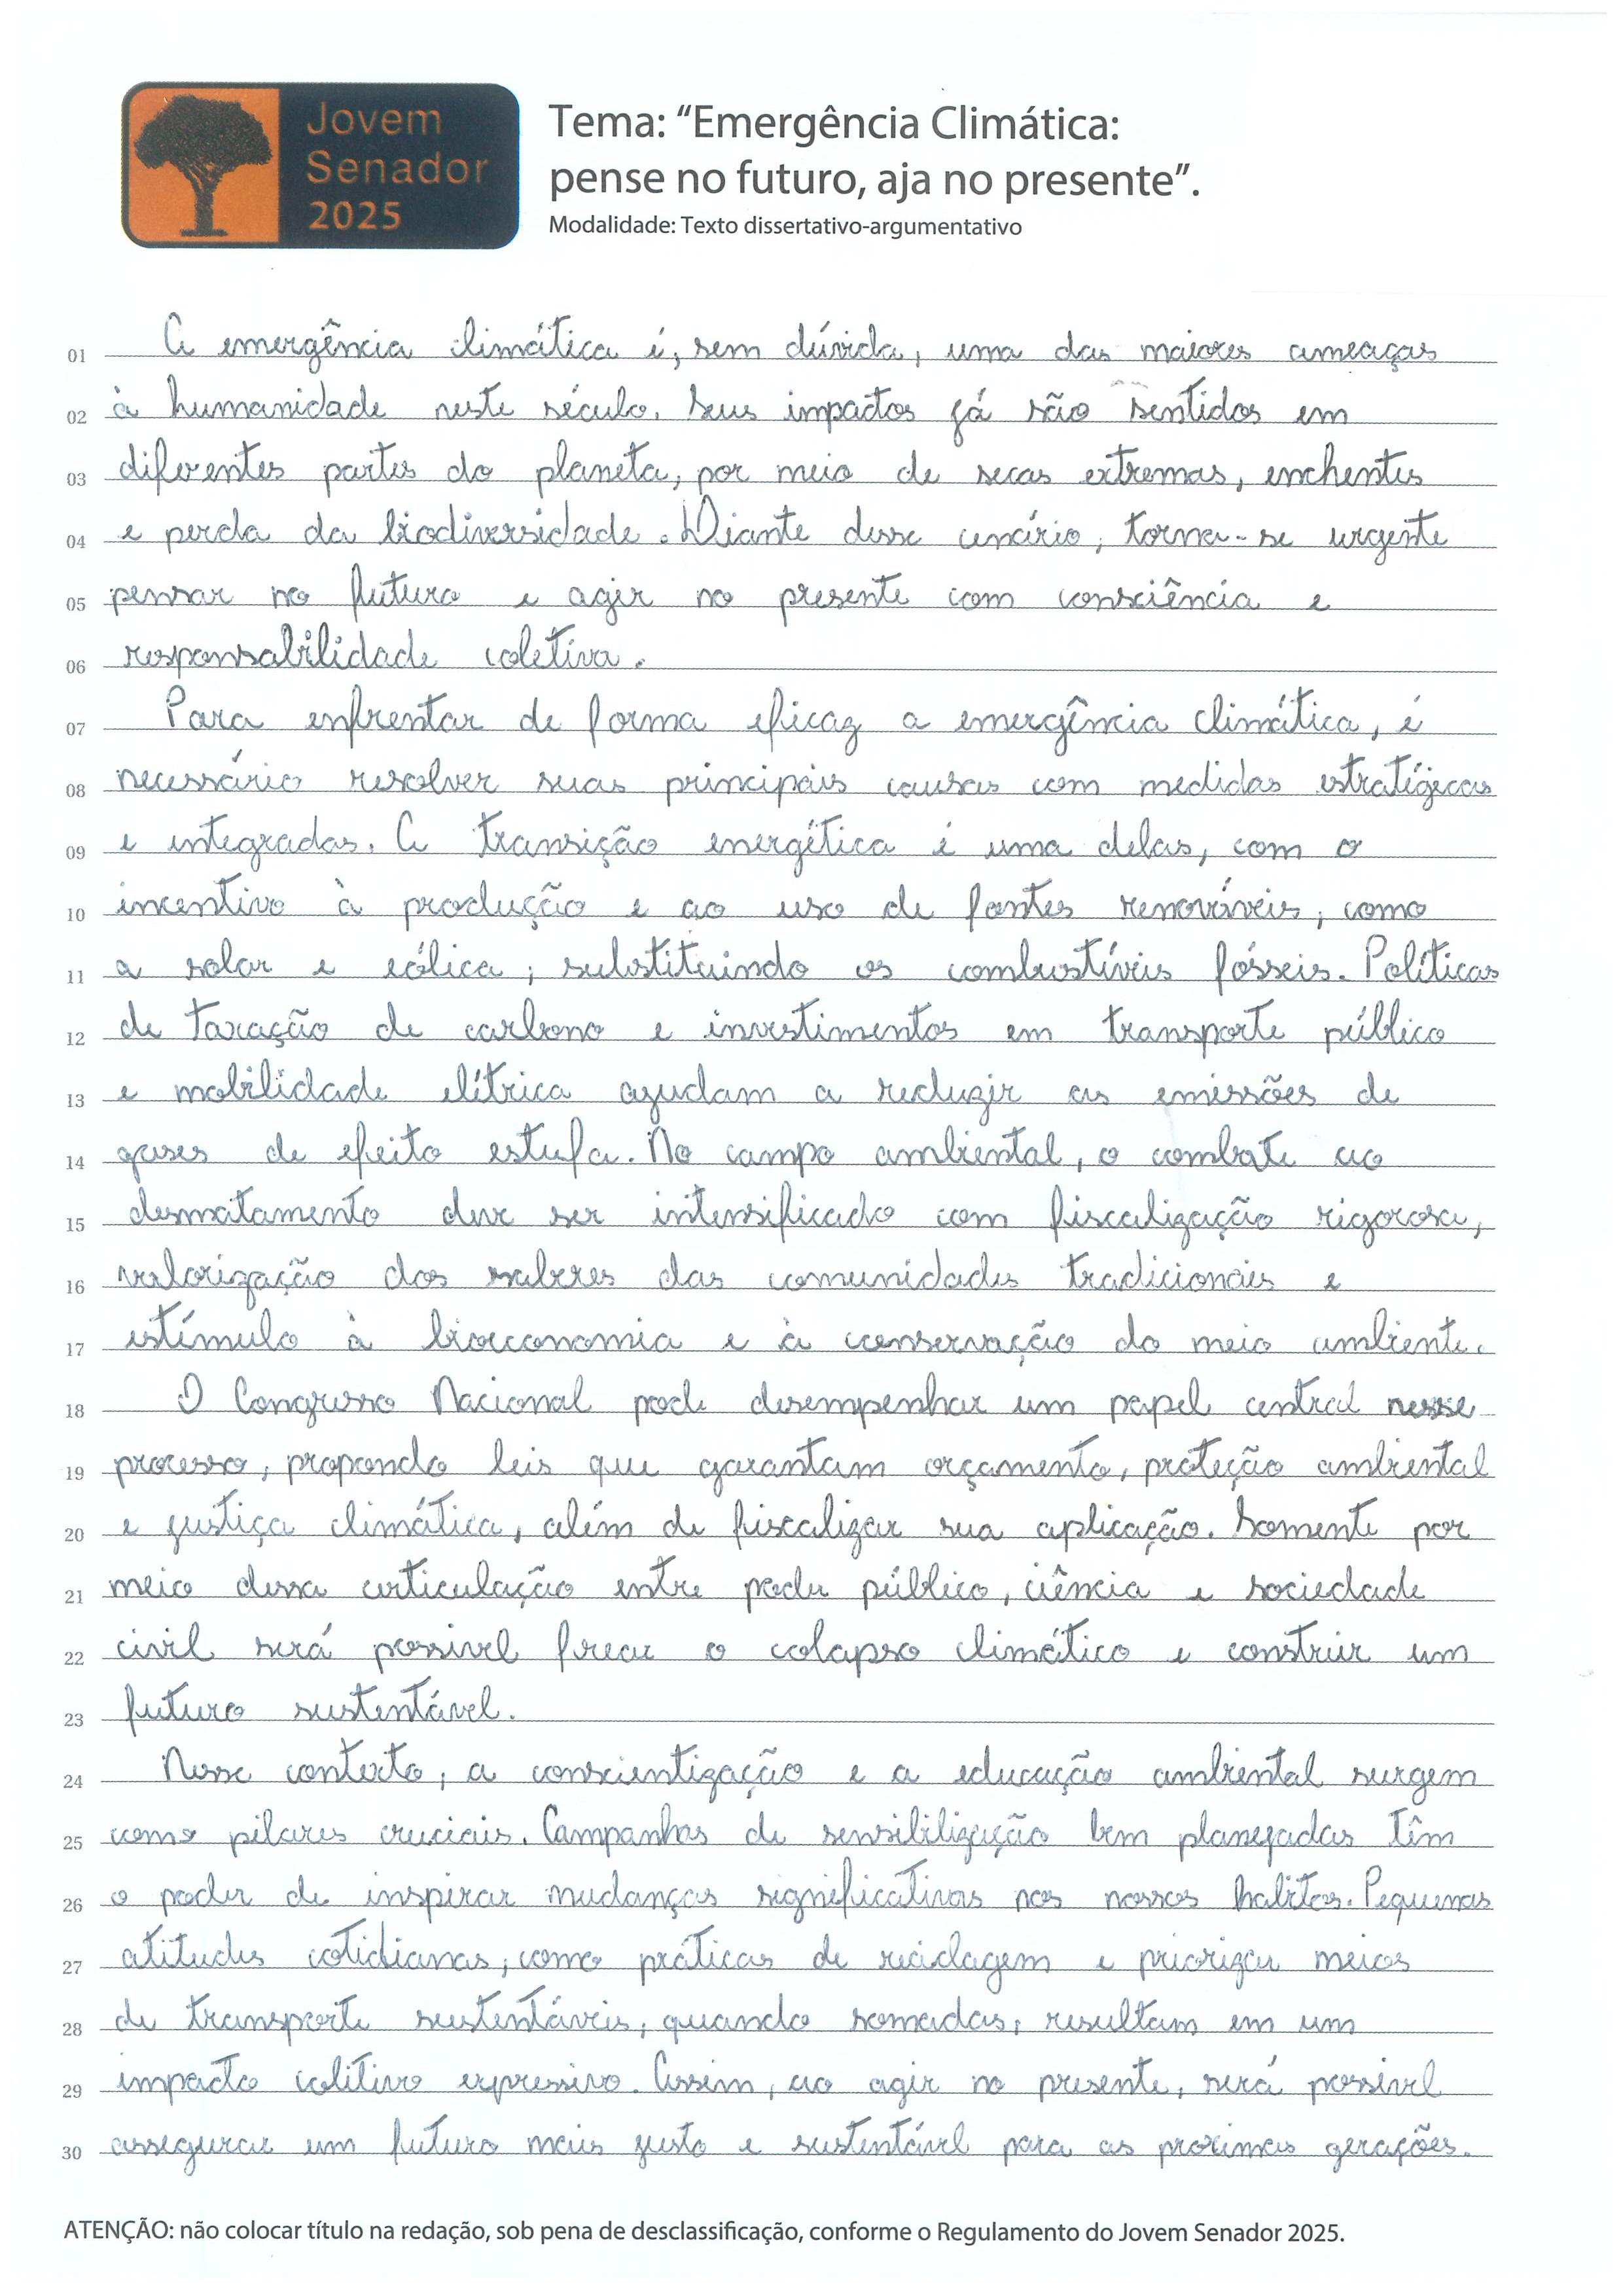 Jovem
Senador
2025
Tema: “Emergência Climática:
pense no futuro, aja no presente”.
Modalidade: Texto dissertativo-argumentativo
01 A emergência climática é, sem dúvida, uma das maiores ameaças
02 à humanidade neste século. Seus impactos já são sentidos em
03 diferentes partes do planeta, por meio de secas extremas, enchentes
04 e perda da biodiversidade. Diante desse cenário, torna-se urgente
05 pensar no futuro e agir no presente com consciência e
06 responsabilidade coletiva.
07 Para enfrentar de forma eficaz a emergência climática, é
08 necessário resolver suas principais causas com medidas estratégicas
09 e integradas. A transição energética é uma delas, com o
10 incentivo à produção e ao uso de fontes renováveis, como
11 a solar e eólica, substituindo os combustíveis fósseis. Políticas
12 de taxação de carbono e investimentos em transporte público
13 e mobilidade elétrica ajudam a reduzir as emissões de
14 gases de efeito estufa. No campo ambiental, o combate ao
15 desmatamento deve ser intensificado com fiscalização rigorosa,
16 valorização dos saberes das comunidades tradicionais e
17 estímulo à bioeconomia e à conservação do meio ambiente.
18 O Congresso Nacional pode desempenhar um papel central nesse
19 processo, propondo leis que garantam orçamento, proteção ambiental
20 e justiça climática, além de fiscalizar sua aplicação. Somente por
21 meio dessa articulação entre poder público, ciência e sociedade
22 civil será possivel frear o colapso climático e construir um
23 futuro sustentável.
24 Nesse contexto, a conscientização e a educação ambiental surgem
25 como pilares cruciais. Campanhas de sensibilização bem planejadas têm
26 o poder de inspirar mudanças significativas nos nossos habitos. Pequenas
27 atitudes cotidianas, como práticas de reciclagem e priorizar meios
28 de transporte sustentáveis, quando somadas, resultam em um
29 impacto coletivo expressivo. Assim, ao agir no presente, será possivel
30 assegurar um futuro mais justo e sustentável para as proximas gerações.
ATENÇÃO: não colocar título na redação, sob pena de desclassificação, conforme o Regulamento do Jovem Senador 2025.